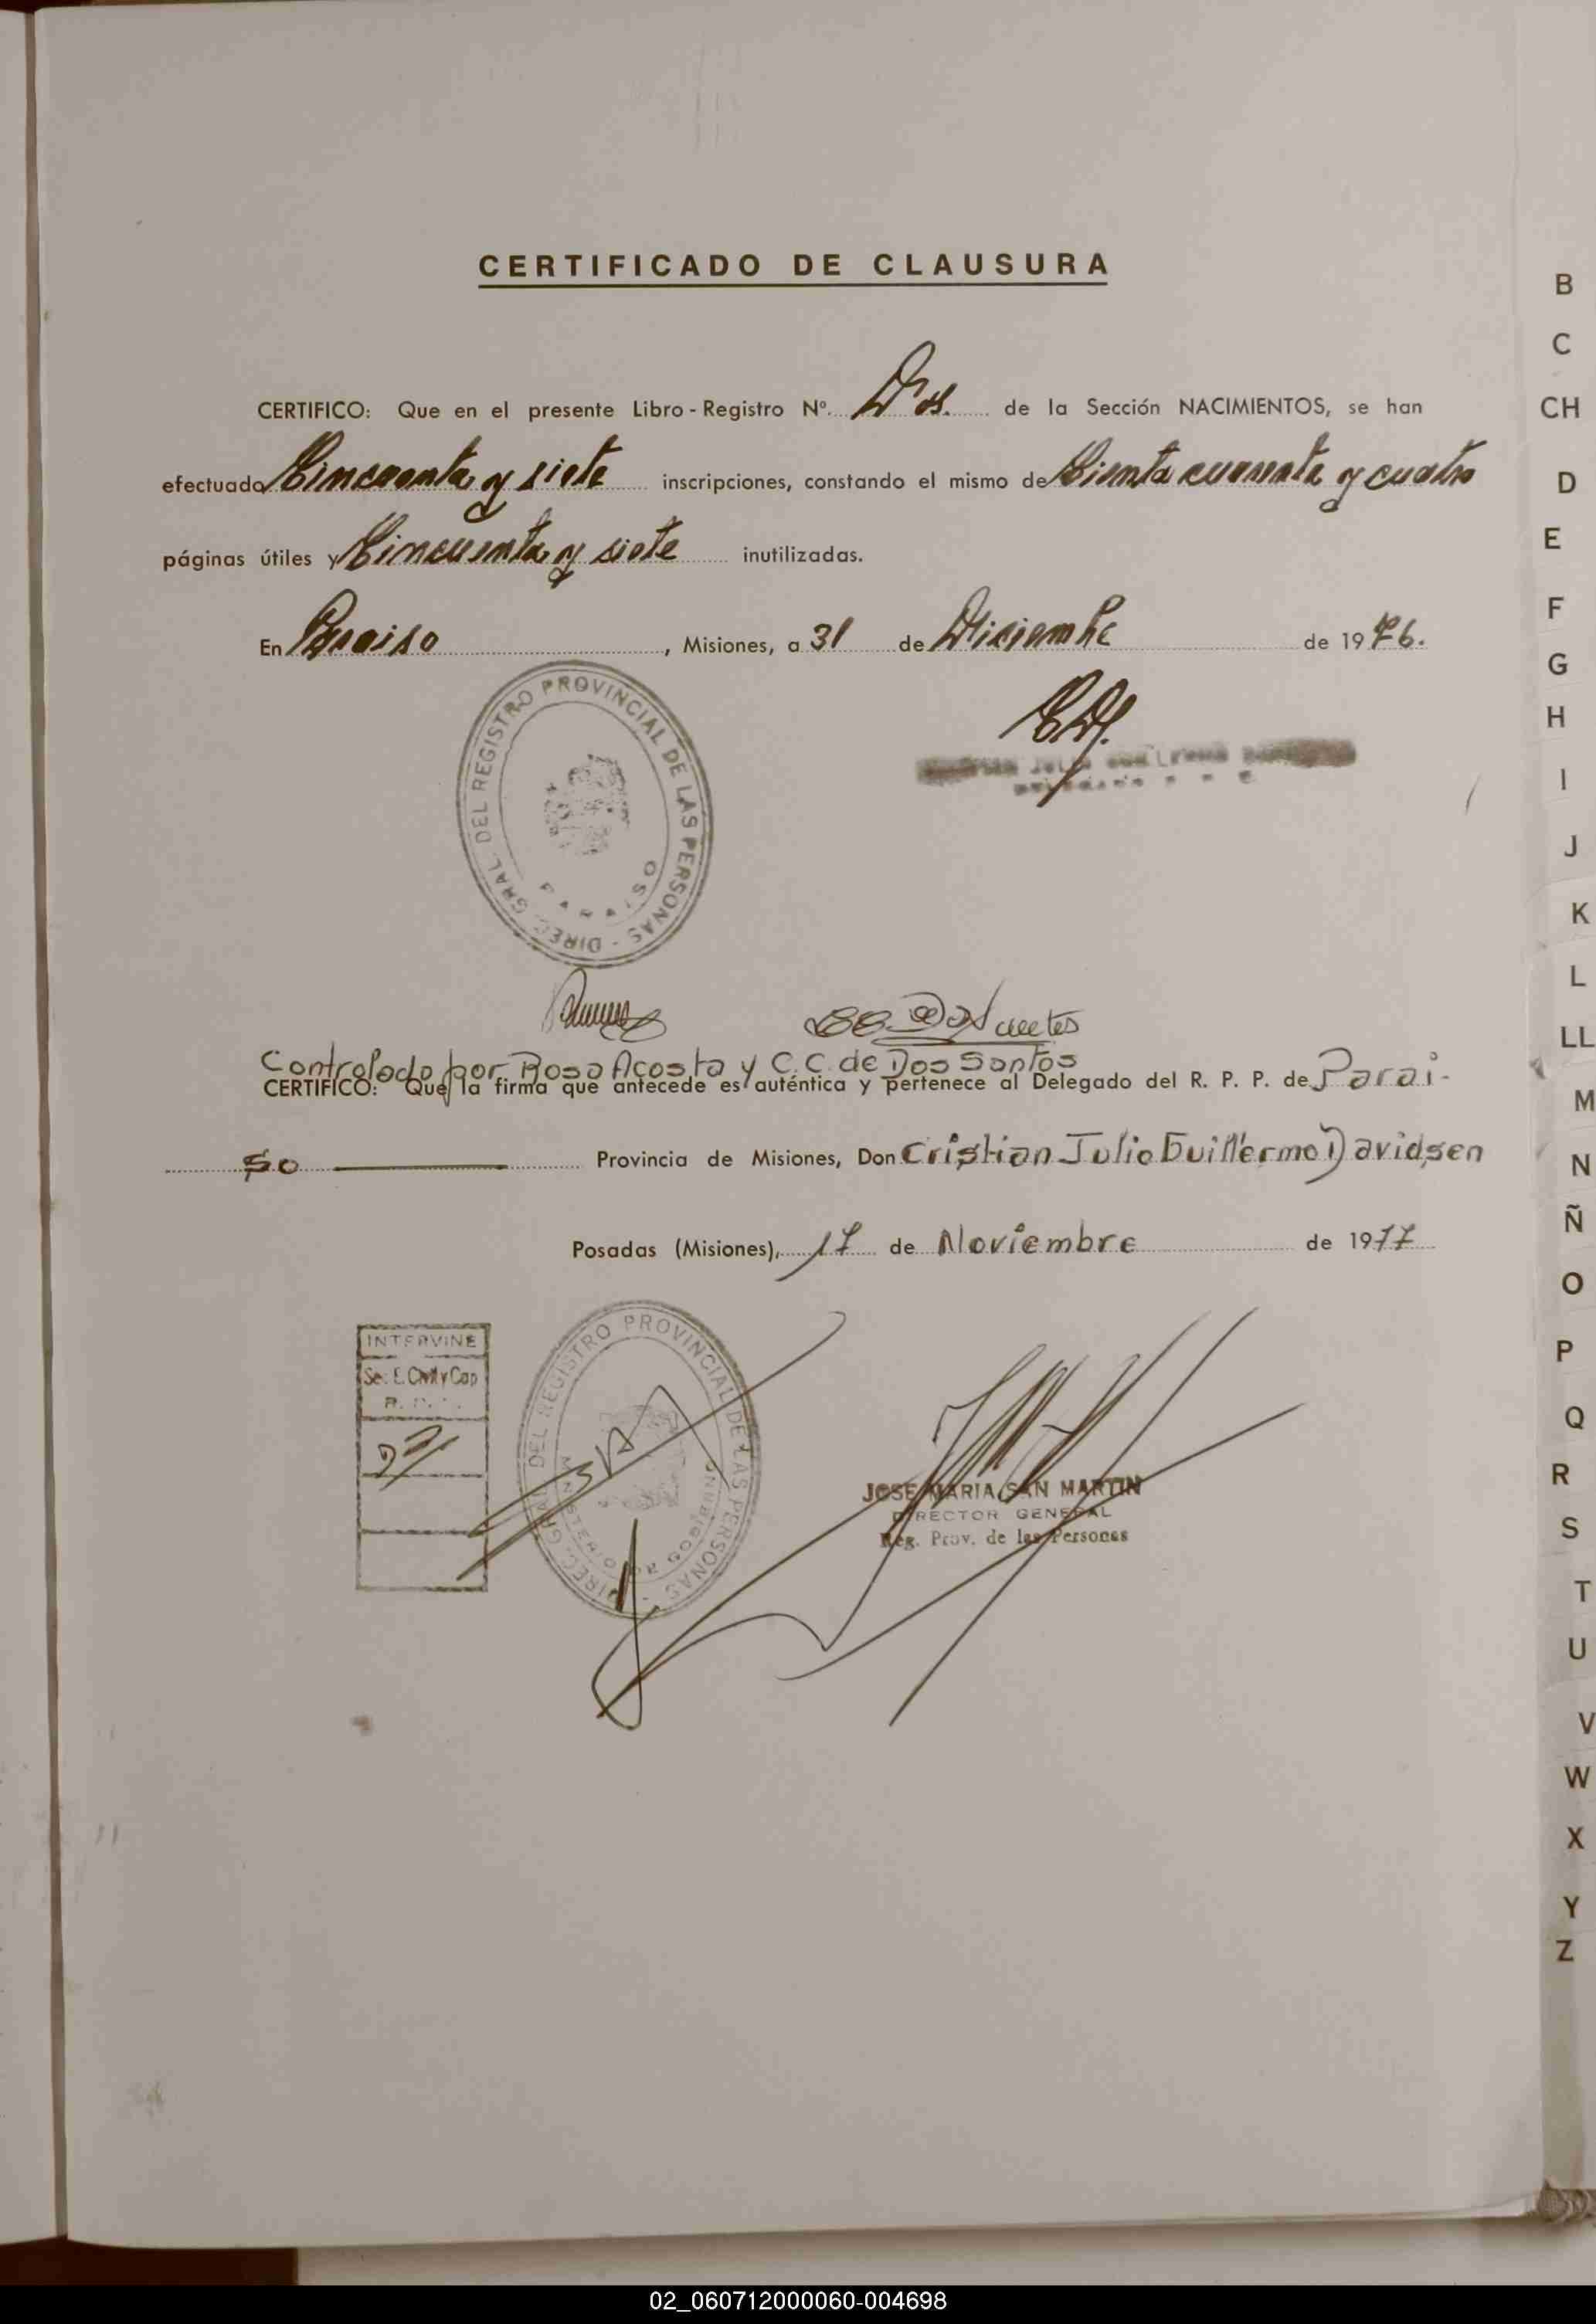 CERTIFICADO DE CLAUSURA
CERTIFICO: Que en el presente Libro - Registro Nº Dos. de la Sección NACIMIENTOS, se han
efectuado Cincuenta y siete inscripciones, constando el mismo de Ciento cuarenta y cuatro
páginas útiles y Cincuenta y siete inutilizadas.
En Paraiso, Misiones, a 31 de Diciembre de 1976.
DIREC. GRAL. DEL REGISTRO PROVINCIAL DE LAS PERSONAS -
PARAISO
Controlado por Rosa Acosta y C.C. de Dos Santos
CERTIFICO: Que la firma que antecede es auténtica y pertenece al Delegado del R. P. P. de Parai-
so Provincia de Misiones, Don Cristian Julio Guillermo Davidsen
Posadas (Misiones), 17 de Noviembre de 1977
INTERVINE
Sec. E. Civil y Cap
DIREC. GRAL. DEL REGISTRO PROVINCIAL DE LAS PERSONAS -
MINISTERIO DE GOBIERNO
JOSE MARIA SAN MARTIN
DIRECTOR GENERAL
Reg. Prov. de las Personas
B
C
CH
D
E
F
G
H
I
J
K
L
LL
M
N
Ñ
O
P
Q
R
S
T
U
V
W
X
Y
Z
02_060712000060-004698